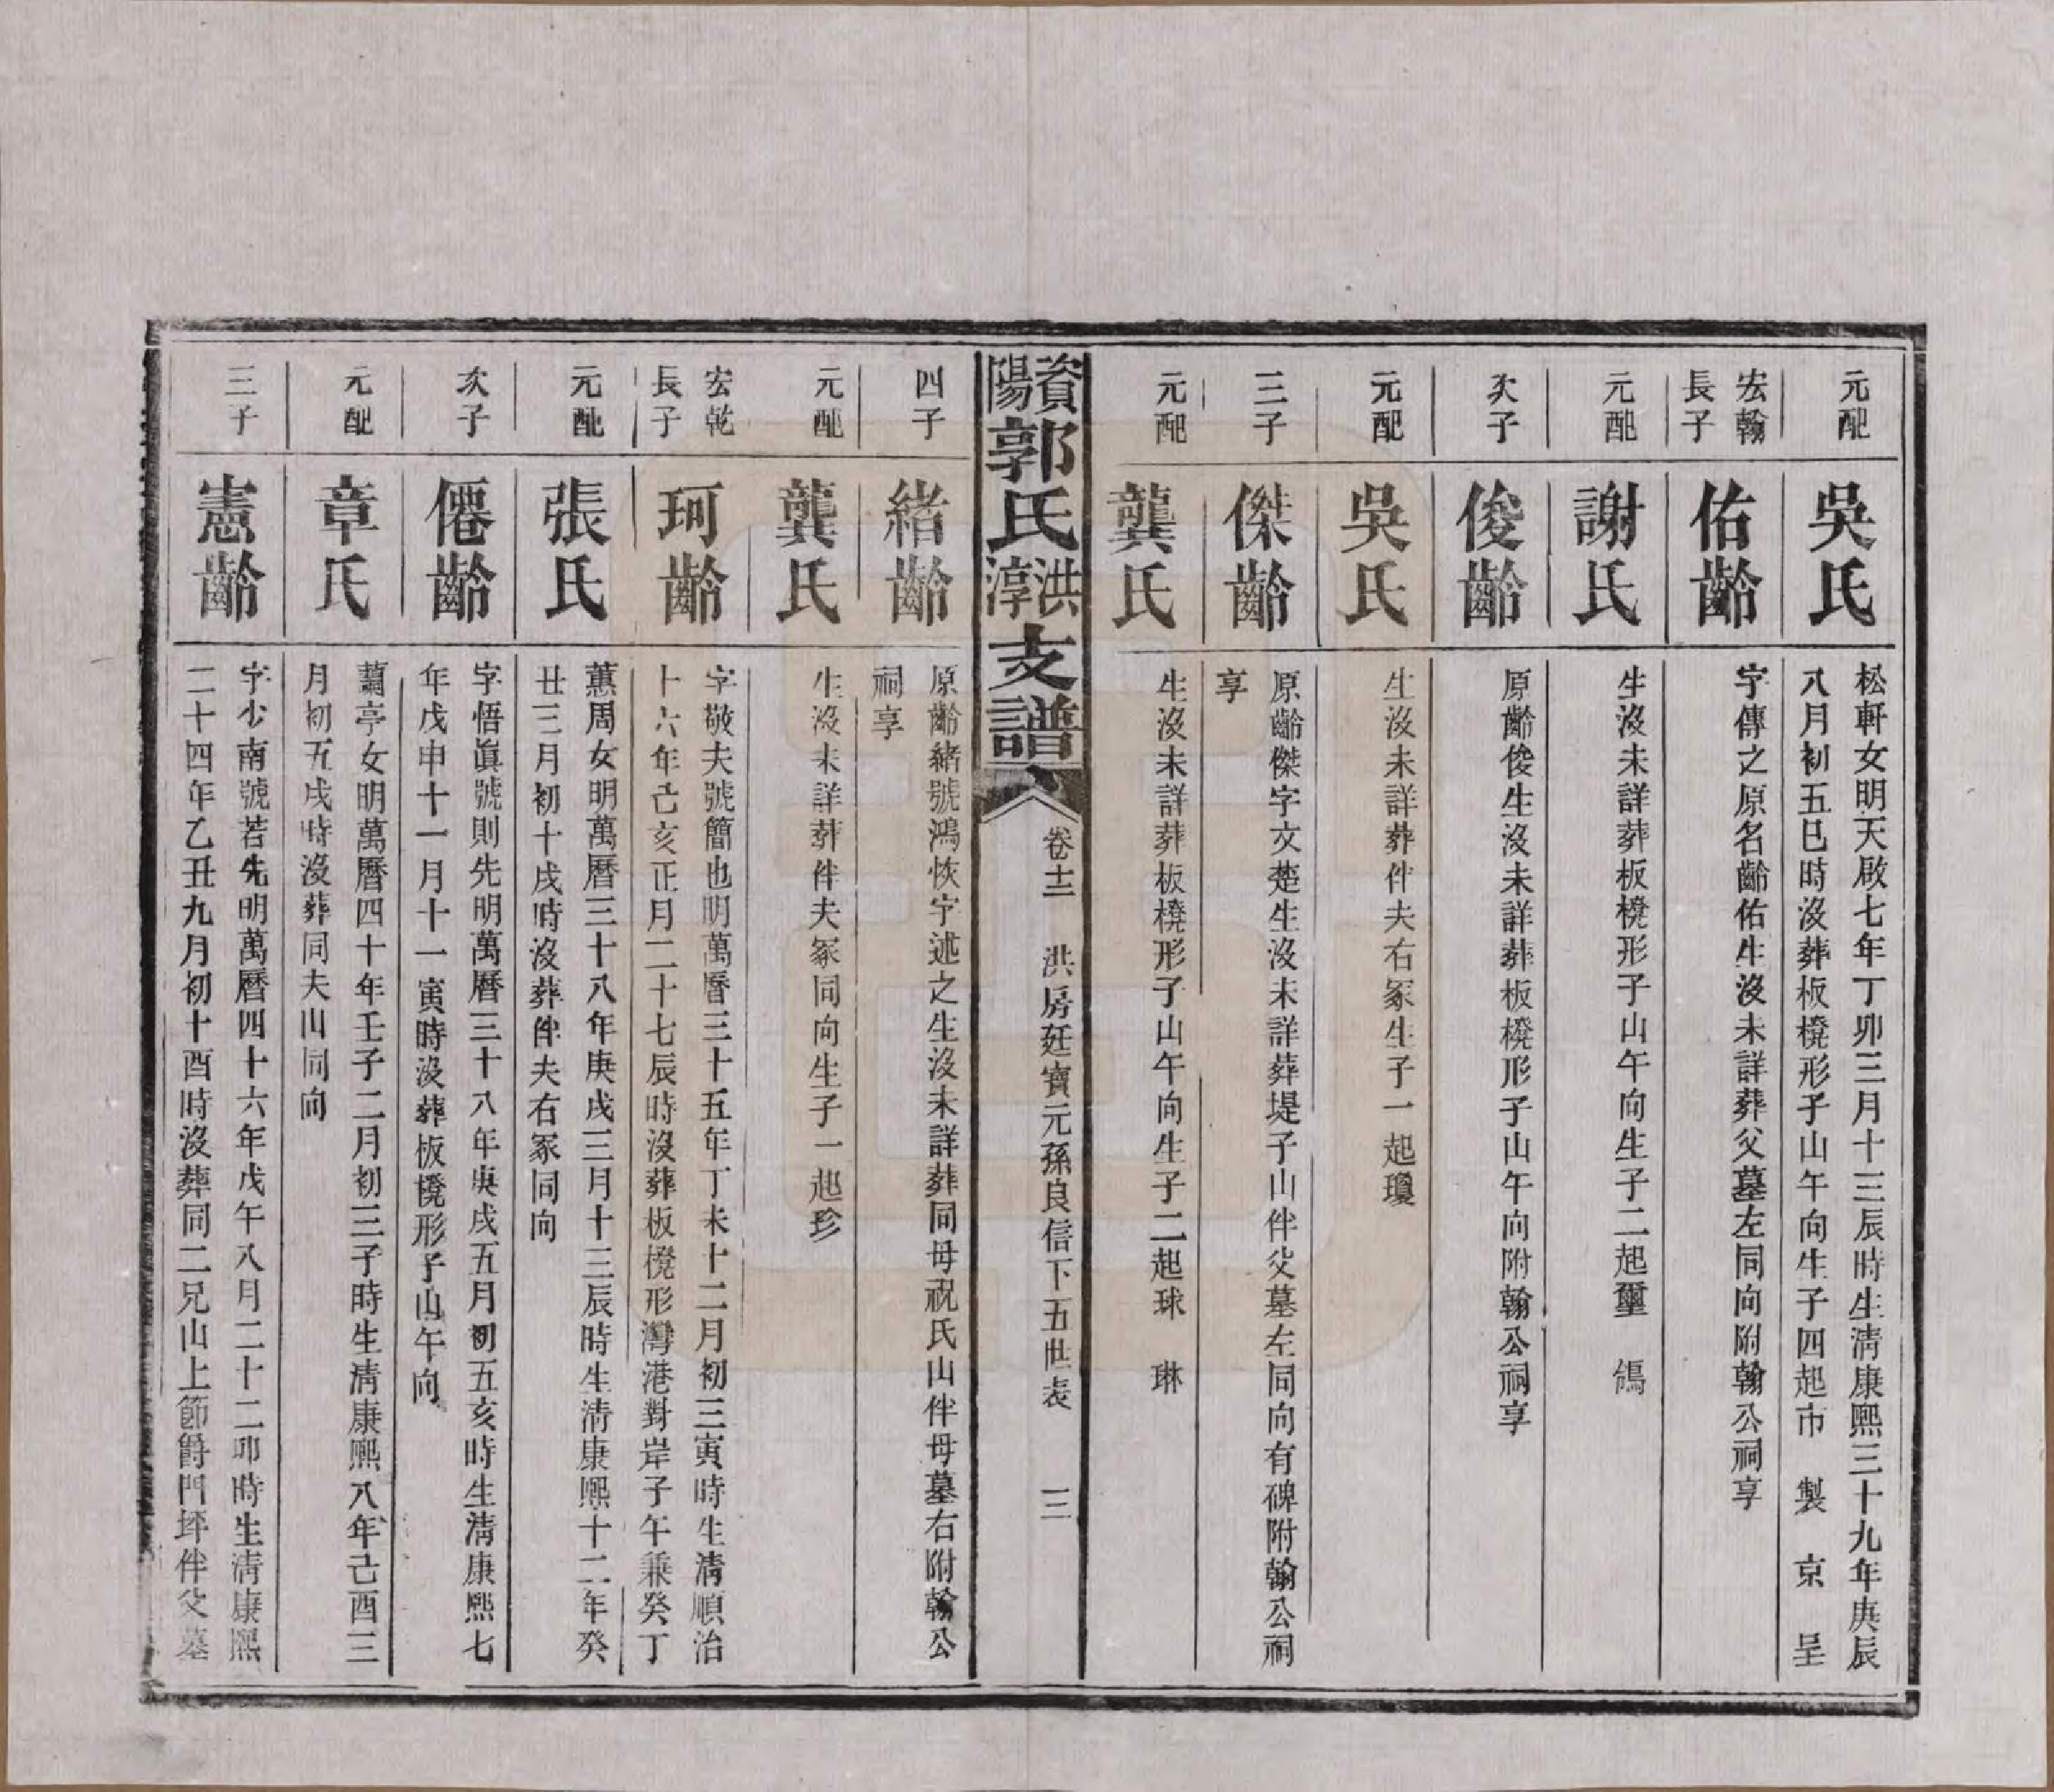 元配
吳氏
松軒女明天啟七年丁卯三月十三辰時生清康熙三十九年庚辰
八月初五巳時沒葬板櫈形子山午向生子四起市　製　京　呈
宏翰
長子
佑齡
字傳之原名齡佑生沒未詳葬父墓左同向附翰公祠享
元配
謝氏
生沒未詳葬板櫈形子山午向生子二起璽　鴿
次子
俊齡
原齡俊生沒未詳葬板櫈形子山午向附翰公祠享
元配
吳氏
生沒未詳葬伴夫右冢生子一起瓊
三子
傑齡
原齡傑字文楚生沒未詳葬堤子山伴父墓左同向有碑附翰公祠
享
元配
龔氏
生沒未詳葬板櫈形子山午向生子二起球　琳
資陽郭氏洪淳支譜
卷十二　洪房廷寶元孫良信下五世表　三
四子
緒齡
原齡緒號鴻恢字述之生沒未詳葬同母祝氏山伴母墓右附翰公
祠享
元配
龔氏
生沒未詳葬伴夫冢同向生子一起珍
宏乾
長子
珂齡
字敬夫號簡也明萬曆三十五年丁未十二月初三寅時生清順治
十六年己亥正月二十七辰時沒葬板櫈形灣港對岸子午兼癸丁
元配
張氏
蕙周女明萬曆三十八年庚戌三月十三辰時生清康熙十二年癸
丑三月初十戌時沒葬伴夫右冢同向
次子
僊齡
字悟眞號則先明萬曆三十八年庚戌五月初五亥時生清康熙七
年戊申十一月十一寅時沒葬板櫈形子山午向
元配
章氏
蘭亭女明萬曆四十年壬子二月初三子時生清康熙八年己酉三
月初五戌時沒葬同夫山同向
三子
憲齡
字少南號若先明萬曆四十六年戊午八月二十二卯時生清康熙
二十四年乙丑九月初十酉時沒葬同二兄山上節爵門坪伴父墓